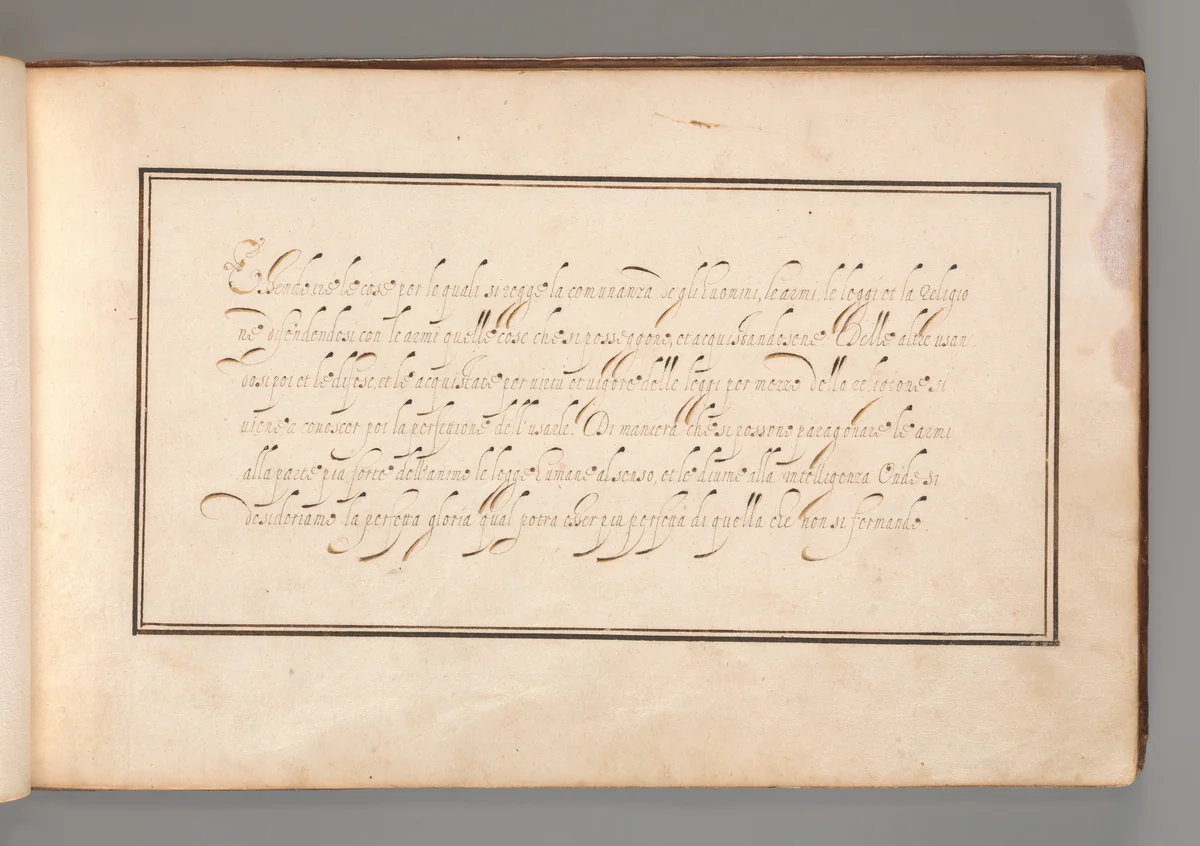 Essendo tré le cose per le quali si regge la comunanza de gli huomini, le armi, le leggi et la religio
ne difendendosi con le armi quelle cose che si posseggono, et acquistandosene delle altre usan
dosi poi et le difese, et le acquistate per virtù et vigore delle leggi per mezzo della religione si
viene a conoscer poi la perfettione dell'usarle. Di maniera che si possono paragonare le armi
alla parte piu forte dell'animo le legge humane al senso, et le divine alla intelligenza Onde si
desideriamo la perfetta gloria qual potra esser piu perfetta di quella che non si fermando.